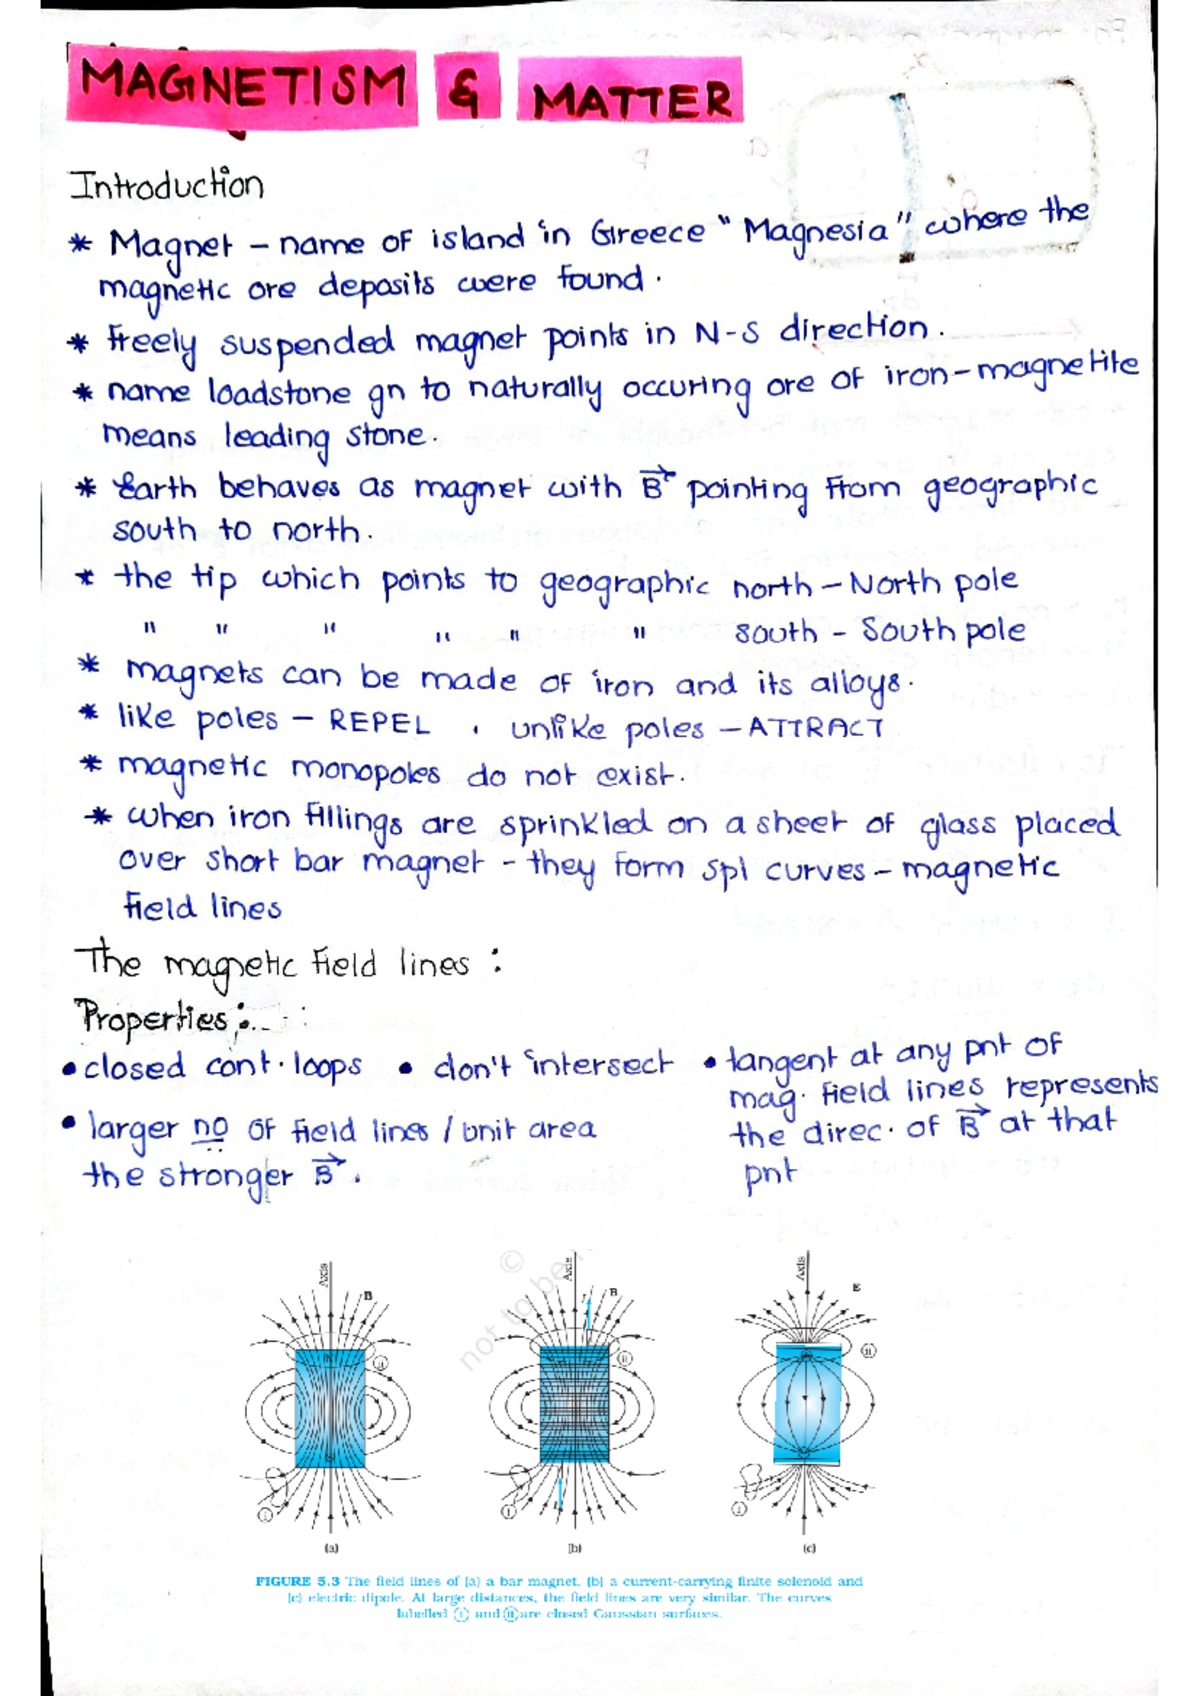 MAGNETISM & MATTER
Introduction
* Magnet – name of island in Greece "Magnesia" where the
magnetic ore deposits were found.
* freely suspended magnet points in N-S direction.
* name loadstone gn to naturally occuring ore of iron-magnetite
means leading stone.
* Earth behaves as magnet with B⃗ pointing from geographic
south to north.
* the tip which points to geographic north – North pole
" " " " " " south – South pole
* magnets can be made of iron and its alloys.
* like poles – REPEL , unlike poles – ATTRACT
* magnetic monopoles do not exist.
* when iron fillings are sprinkled on a sheet of glass placed
over short bar magnet - they form spl curves – magnetic
field lines
The magnetic field lines :
Properties :
• closed cont. loops • don't intersect • tangent at any pnt of
mag. field lines represents
the direc. of B⃗ at that
pnt
• larger no of field lines / unit area
the stronger B⃗ .
Axis B Axis B Axis E
© not to be
N ii ii ii
S i i i
(a) (b) (c)
FIGURE 5.3 The field lines of (a) a bar magnet, (b) a current-carrying finite solenoid and
(c) electric dipole. At large distances, the field lines are very similar. The curves
labelled i and ii are closed Gaussian surfaces.